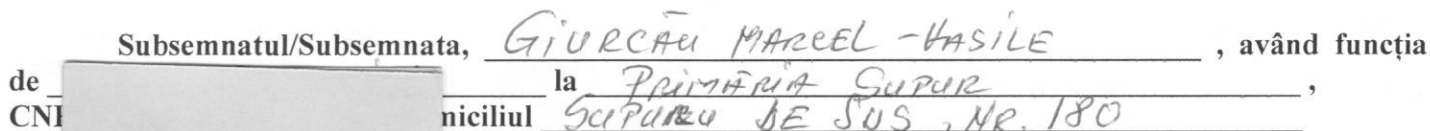 Subsemnatul/Subsemnata, GIURCĂU MARCEL-VASILE , având funcția
de la PRIMĂRIA SUPUR ,
CNP miciliul SUPURU DE SUS, NR. 180